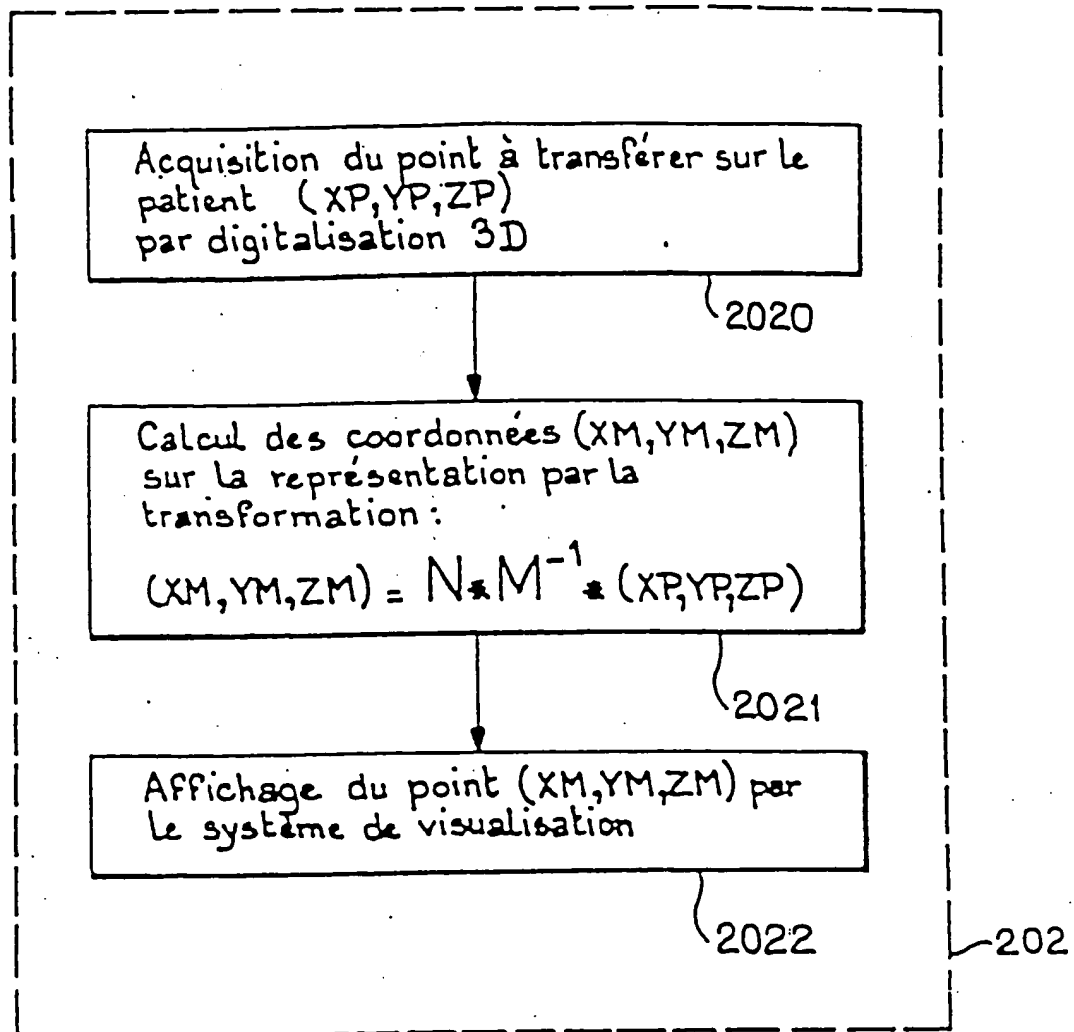 Acquisition du point à transférer sur le
patient (XP,YP,ZP)
par digitalisation 3D
2020
Calcul des coordonnées (XM,YM,ZM)
sur la représentation par la
transformation :
(XM,YM,ZM) = N * M⁻¹ * (XP,YP,ZP)
2021
Affichage du point (XM,YM,ZM) par
le système de visualisation
2022
202